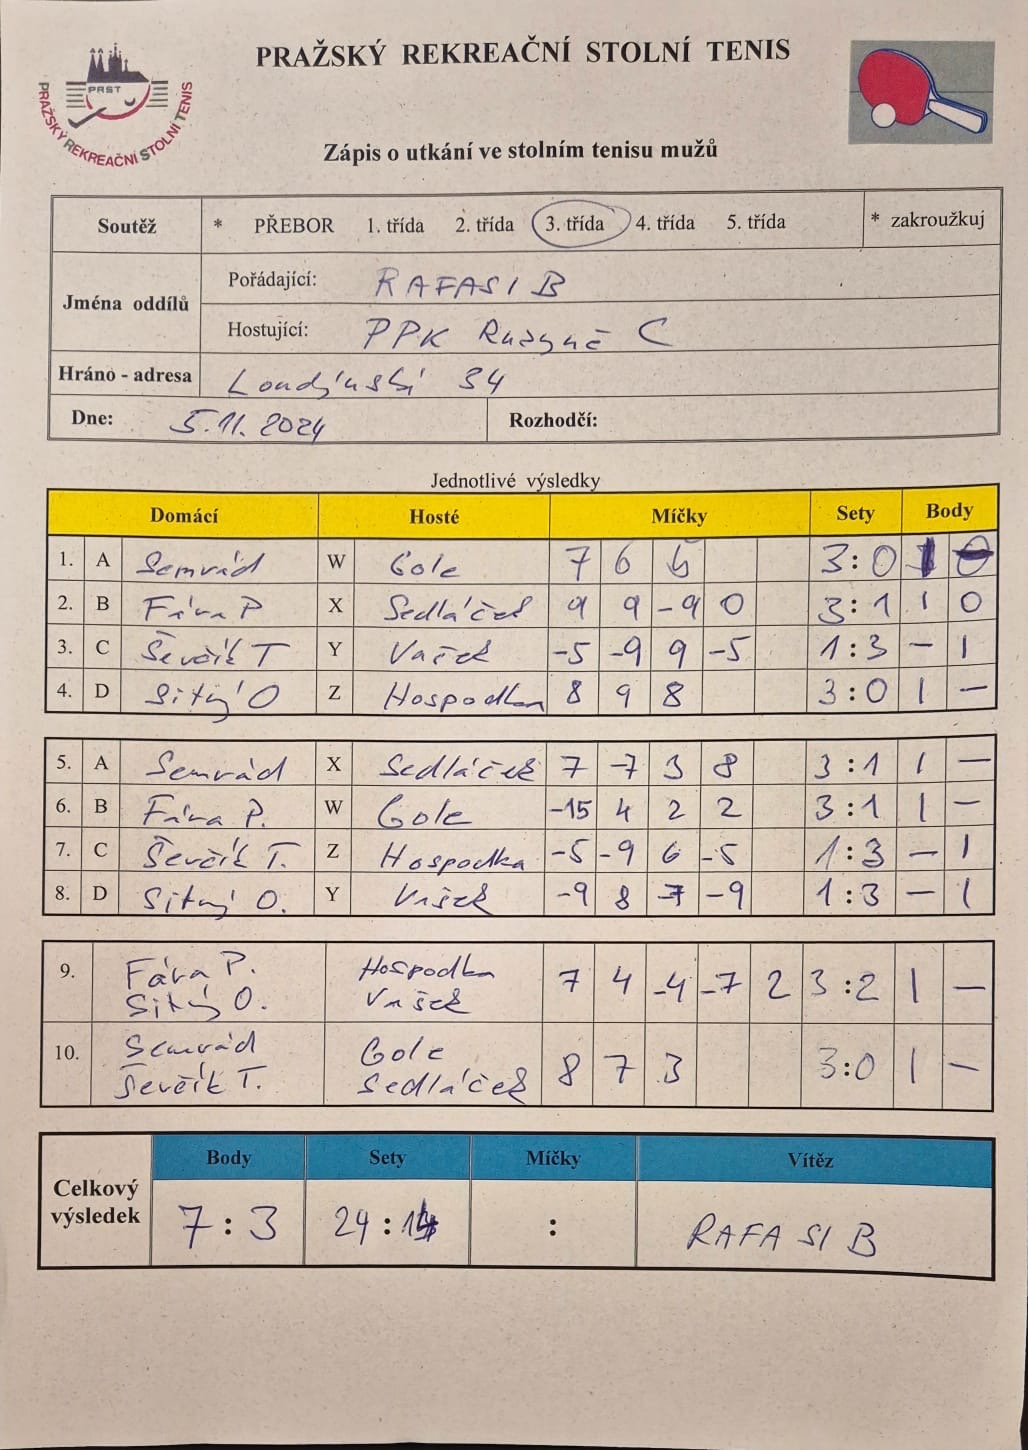 PRAŽSKÝ REKREAČNÍ STOLNÍ TENIS
PRST
PRAŽSKÝ REKREAČNÍ STOLNÍ TENIS
Zápis o utkání ve stolním tenisu mužů
Soutěž * PŘEBOR 1. třída 2. třída 3. třída 4. třída 5. třída * zakroužkuj
Jména oddílů
Pořádající: RAFASI B
Hostující: PPK Ruzyně C
Hráno - adresa Londýnská 34
Dne: 5.11.2024 Rozhodčí:
Jednotlivé výsledky
Domácí Hosté Míčky Sety Body
1. A Semrád W Gole 7 6 6 3:0 1 0
2. B Fára P X Sedláček 9 9 -9 0 3:1 1 0
3. C Ševčík T Y Vašek -5 -9 9 -5 1:3 - 1
4. D Sitný O Z Hospodka 8 9 8 3:0 1 -
5. A Semrád X Sedláček 7 -7 3 8 3:1 1 -
6. B Fára P. W Gole -15 4 2 2 3:1 1 -
7. C Ševčík T. Z Hospodka -5 -9 6 -5 1:3 - 1
8. D Sitný O. Y Vašek -9 8 -7 -9 1:3 - 1
9. Fára P. Hospodka 7 4 -4 -7 2 3:2 1 -
Sitný O. Vašek
10. Semrád Gole 8 7 3 3:0 1 -
Ševčík T. Sedláček
Celkový výsledek
Body Sety Míčky Vítěz
7:3 24:14 : RAFASI B